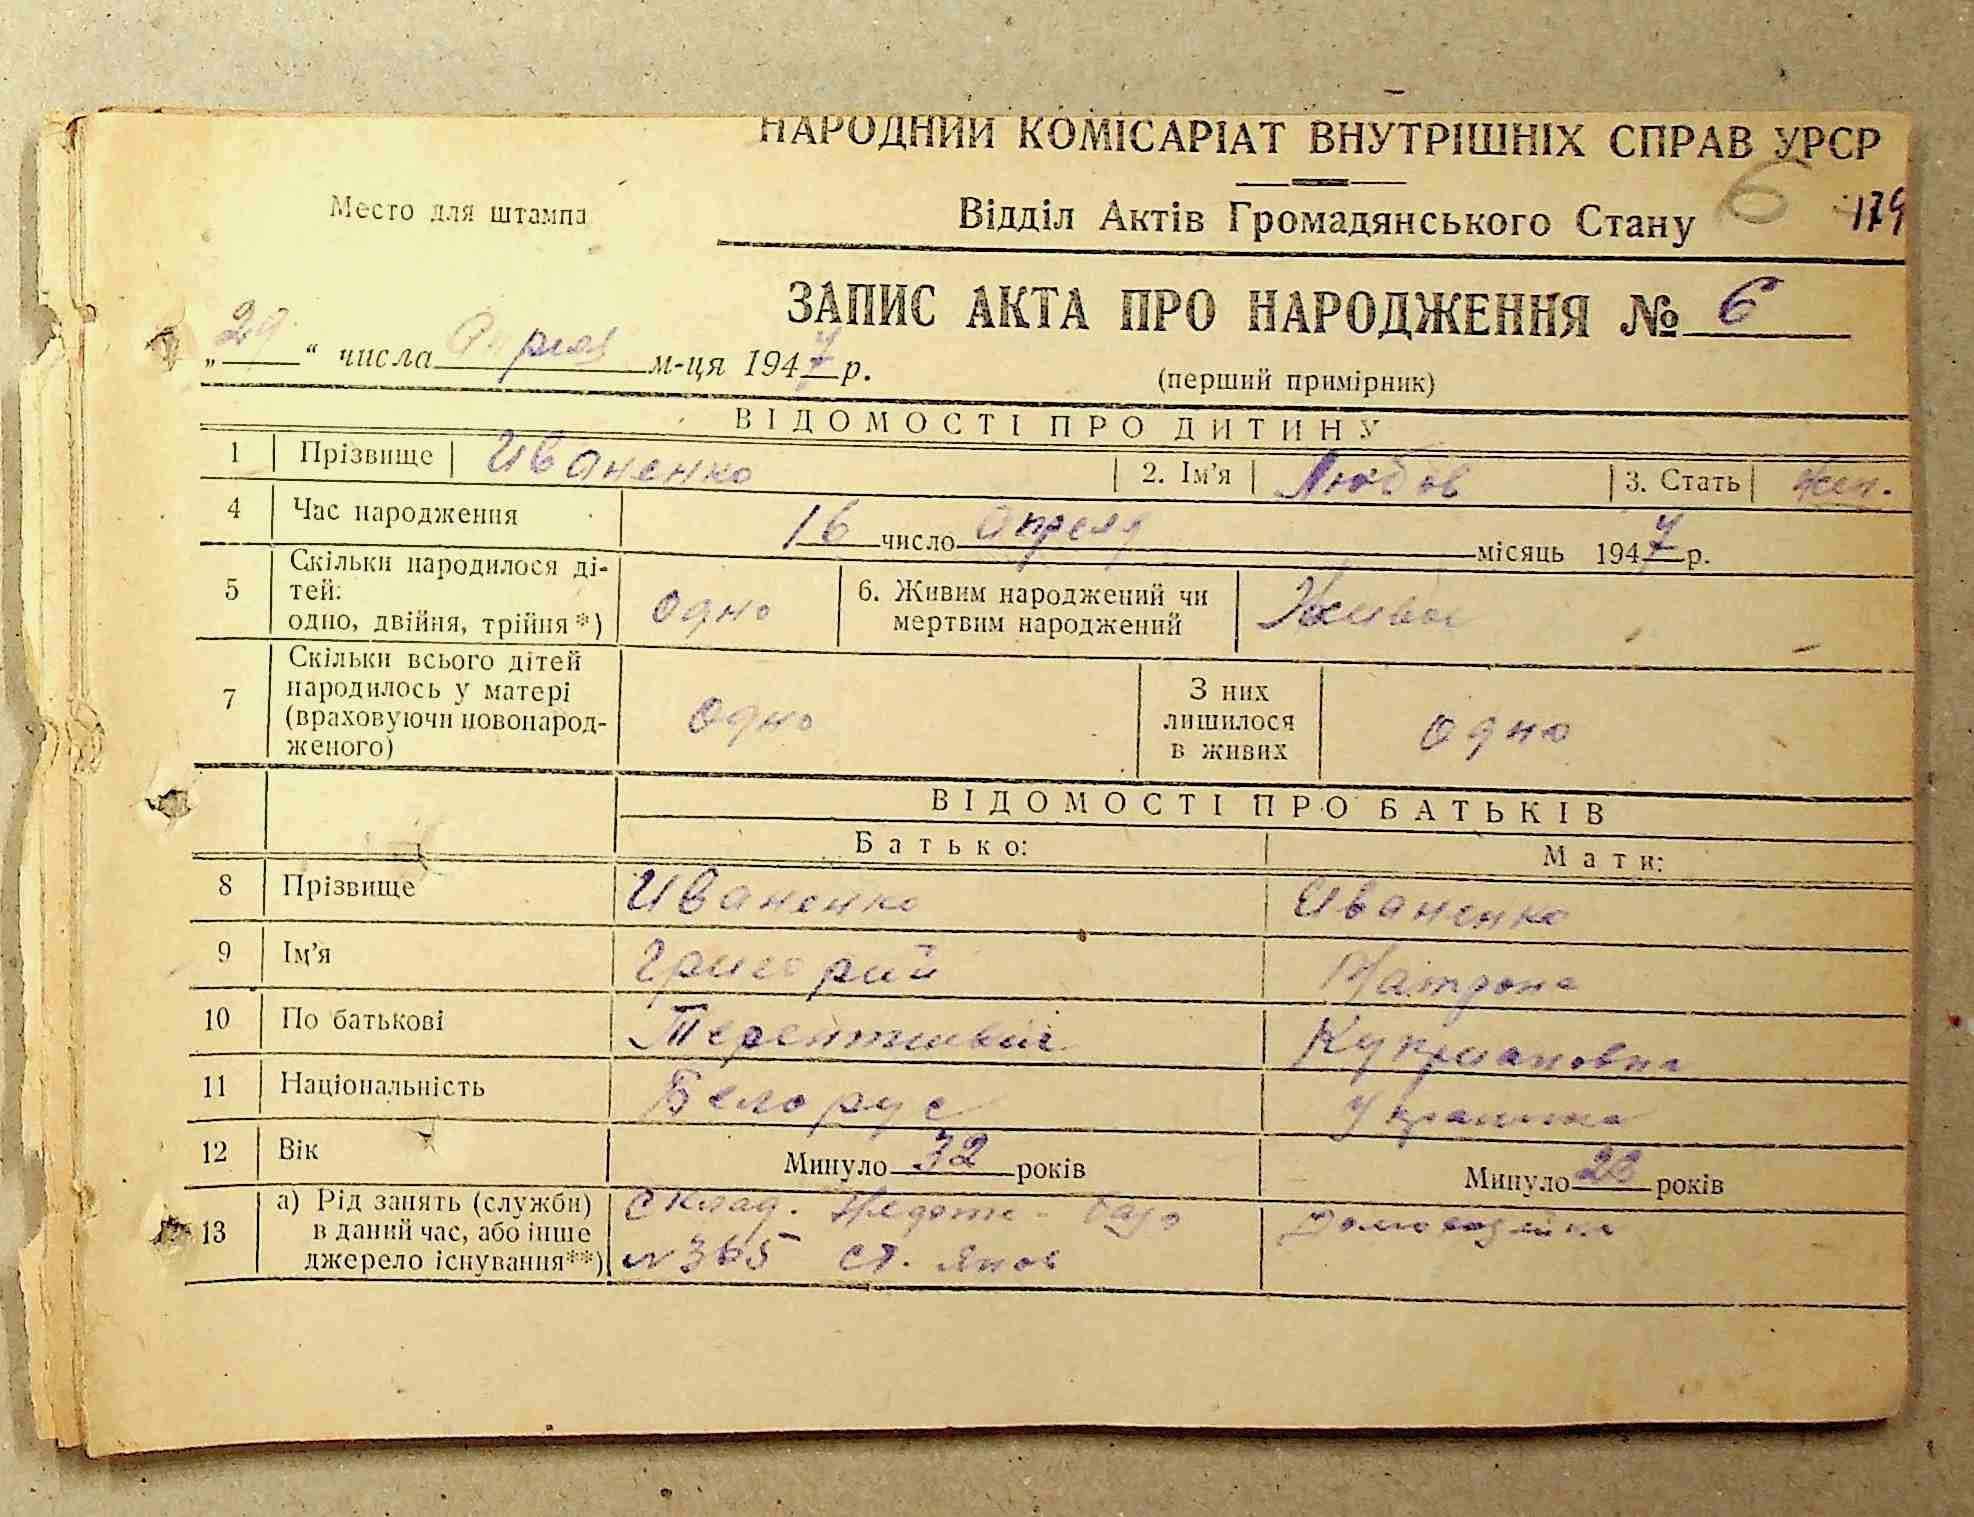 НАРОДНИЙ КОМІСАРІАТ ВНУТРІШНІХ СПРАВ УРСР
Место для штампа
Відділ Актів Громадянського Стану 6 179
ЗАПИС АКТА ПРО НАРОДЖЕННЯ № 6
„29“ числа Апреля м-ця 1947 р.
(перший примірник)
ВІДОМОСТІ ПРО ДИТИНУ
1 Прізвище Иваненко 2. Ім'я Любов 3. Стать Жен.
4 Час народження 16 число Апреля місяць 1947 р.
5 Скільки народилося ді-
тей:
одно, двійня, трійня*) одно
6. Живим народжений чи
мертвим народжений Живой
7 Скільки всього дітей
народилось у матері
(враховуючи новонарод-
женого) одно
З них
лишилося
в живих одно
ВІДОМОСТІ ПРО БАТЬКІВ
Батько: Мати:
8 Прізвище Иваненко Иваненко
9 Ім'я Григорий Матрона
10 По батькові Куприановна
11 Національність Белорус Украинка
12 Вік Минуло 32 років Минуло 28 років
13 а) Рід занять (служби)
в даний час, або інше
джерело існування**)
Склад. Нефте-база
№ 365 ст. Янов
Домохозяйка